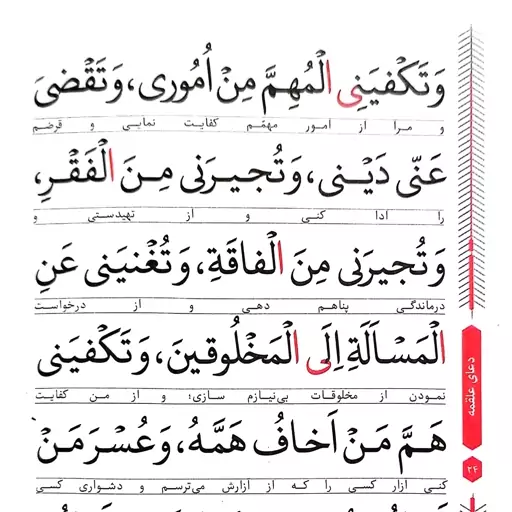 وَتَكْفِيَنِى الْمُهِمَّ مِنْ اُمُورى، وَتَقْضِىَ
و مرا از امور مهمّم کفایت نمایی و قرضم
عَنّى دَيْنى، وَتُجيرَنى مِنَ الْفَقْرِ،
را ادا کنی و از تهیدستی و
وَتُجيرَنى مِنَ الْفاقَةِ، وَتُغْنِيَنى عَنِ
درماندگی پناهم دهی و از درخواست
الْمَسْاَلَةِ اِلَى الْمَخْلُوقينَ، وَتَكْفِيَنى
نمودن از مخلوقات بی‌نیازم سازی؛ و از من کفایت
هَمَّ مَنْ اَخافُ هَمَّهُ، وَعُسْرَ مَنْ
کنی آزار کسی را که از آزارش می‌ترسم و دشواری کسی
دعای علقمه
۲۴